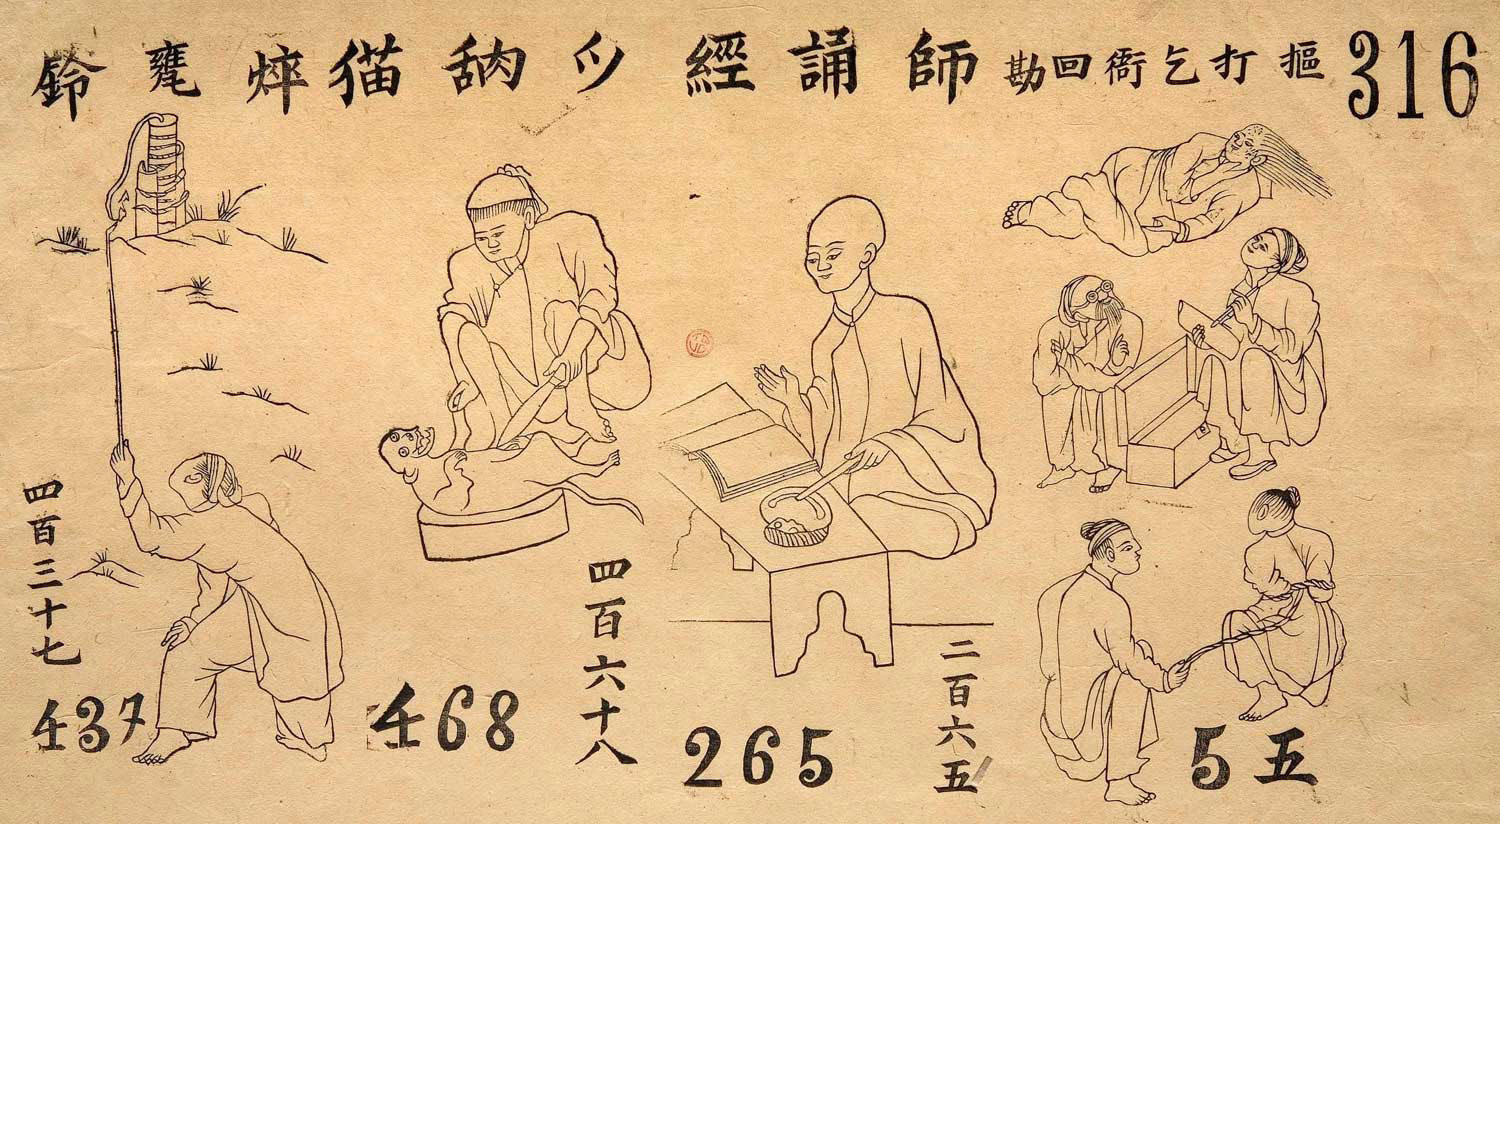 316
摳打乞衙回勘
師誦經
猫
焠甕鈴
5 五
二百六五
265
四百六十八
468
四百三十七
437